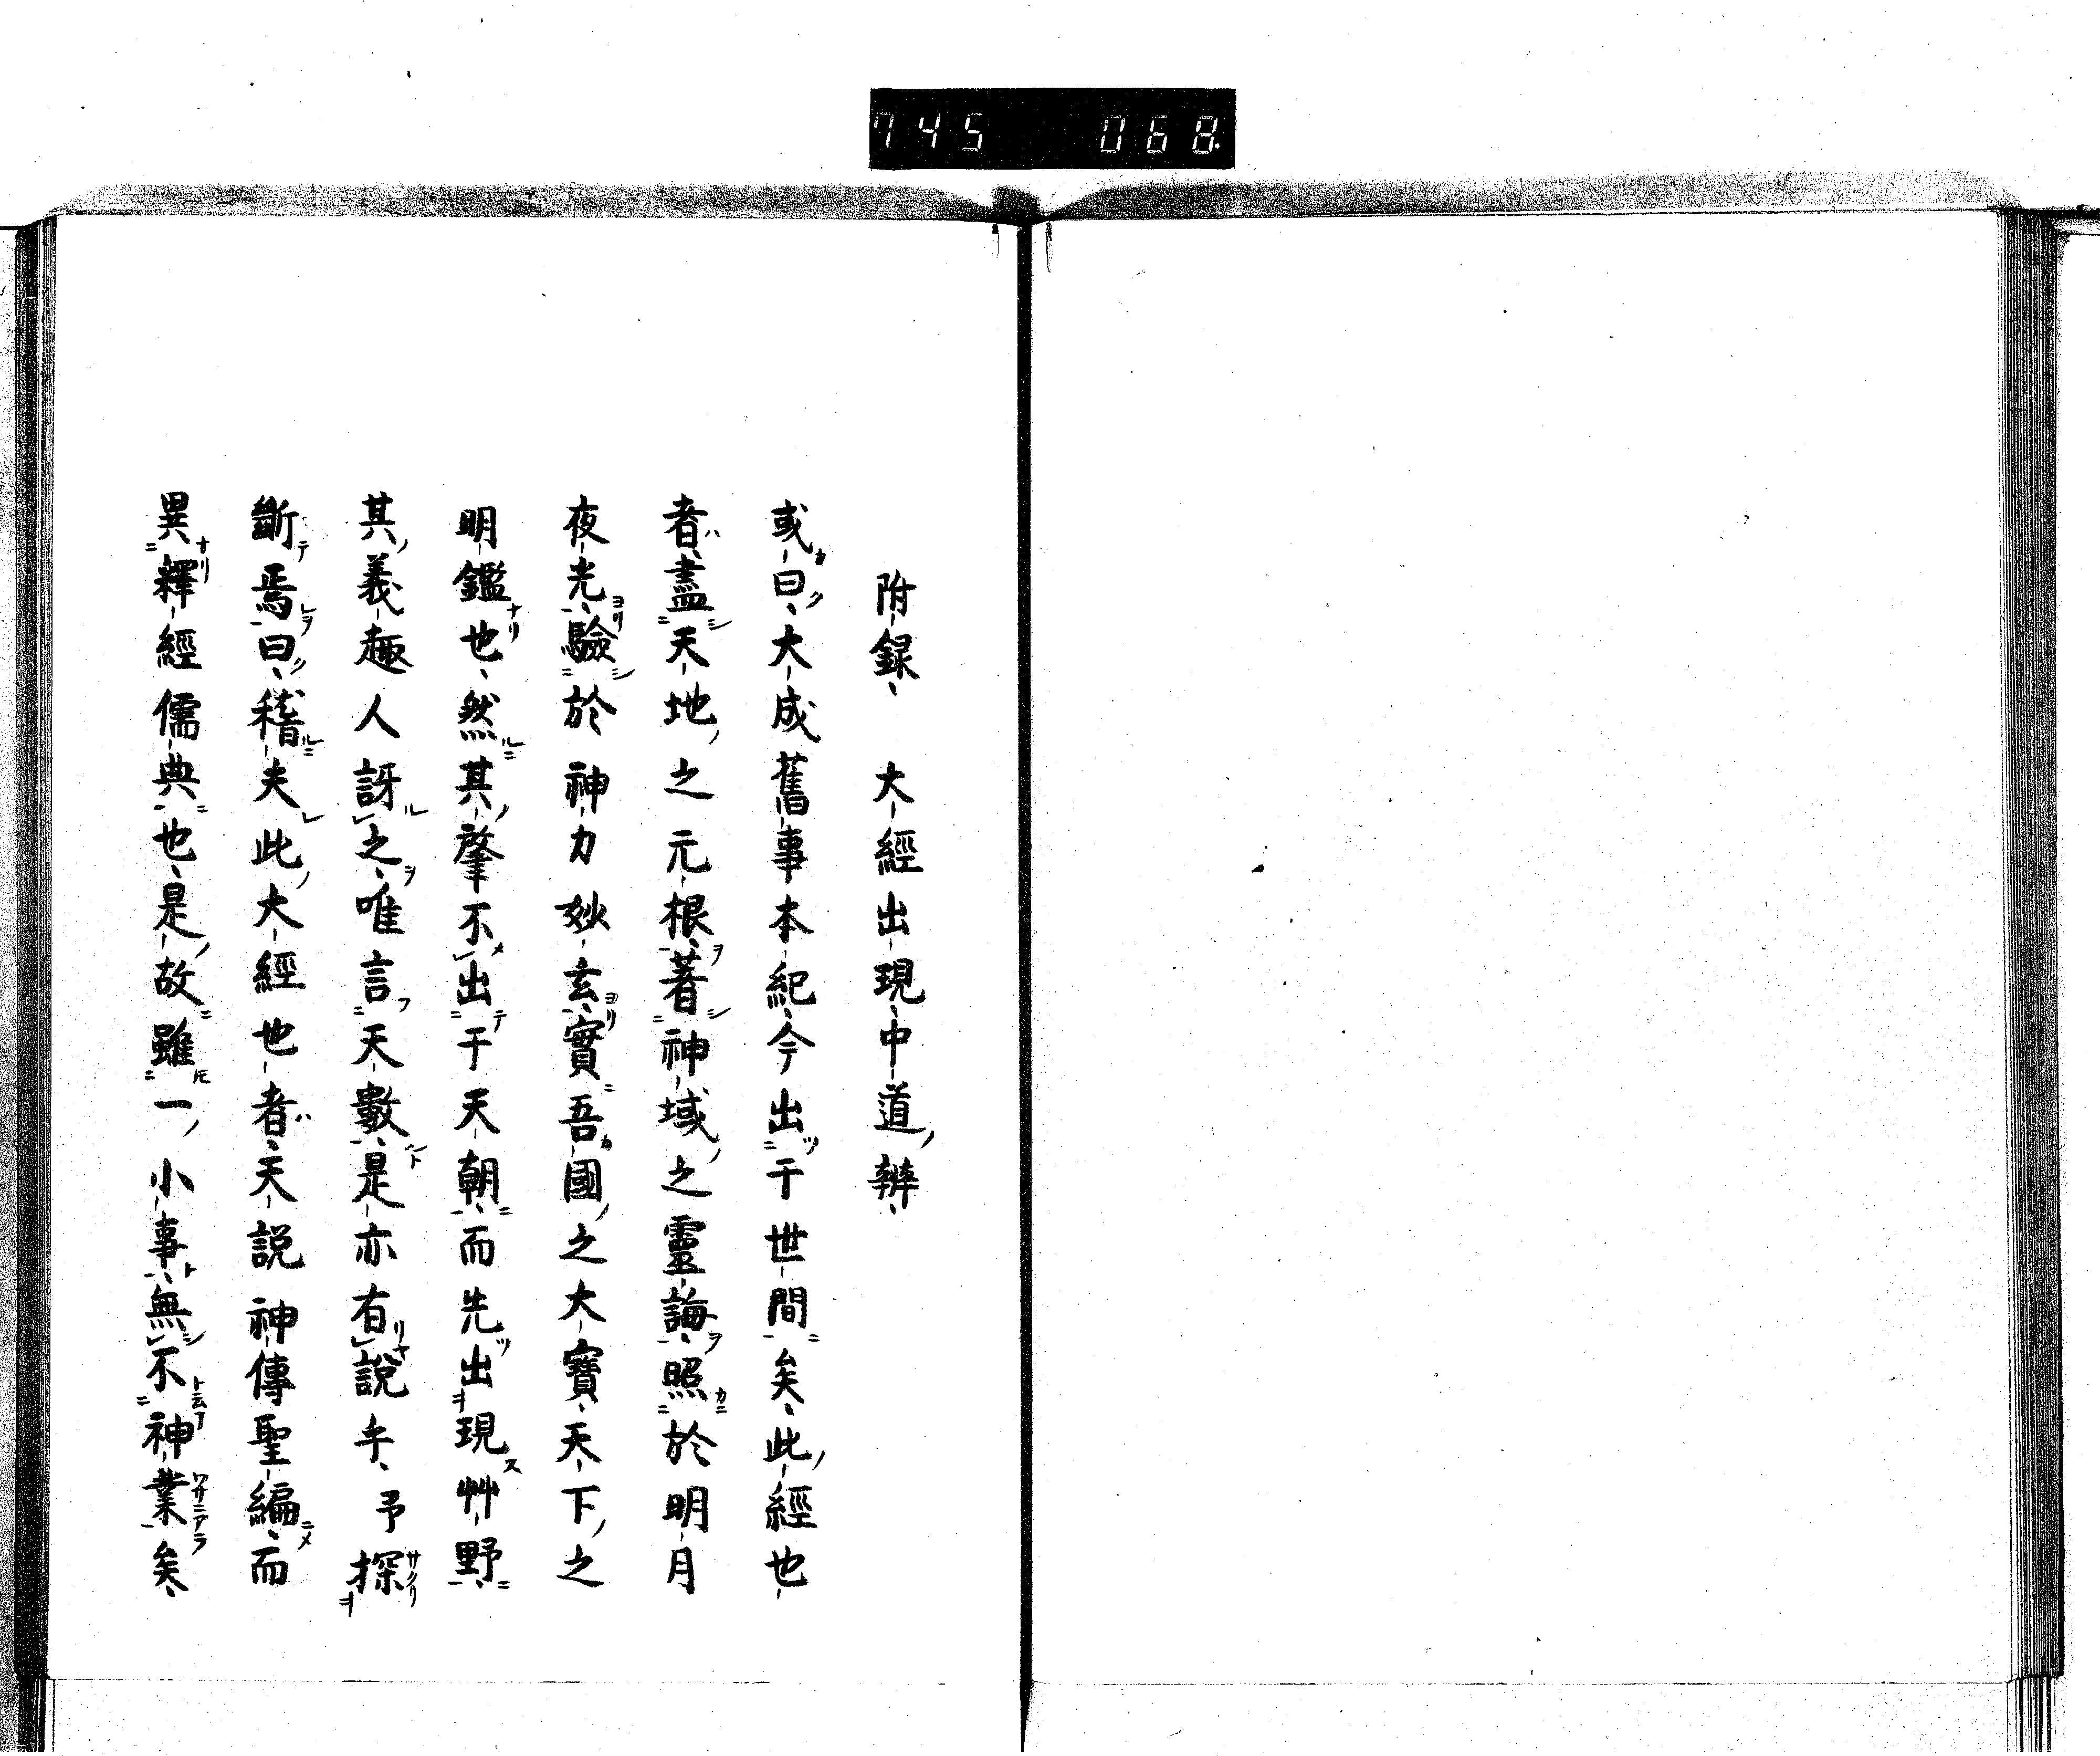 745 068.
附録、 大經出現、中道ノ辨、
或曰、大成舊事本紀、今出于世間矣、此經也
者、盡天地之元根、著神域之靈誨、照於明月
夜光、驗於神力妙玄、實吾國之大寶、天下之
明鑑也、然其肇不出于天朝而先出現艸野、
其義趣人訝之、唯言天數、是亦有說乎、予探
斷焉曰、稽夫此大經也者、天説神傳聖編、而
異釋經儒典也、是故雖一小事、無不神業矣、